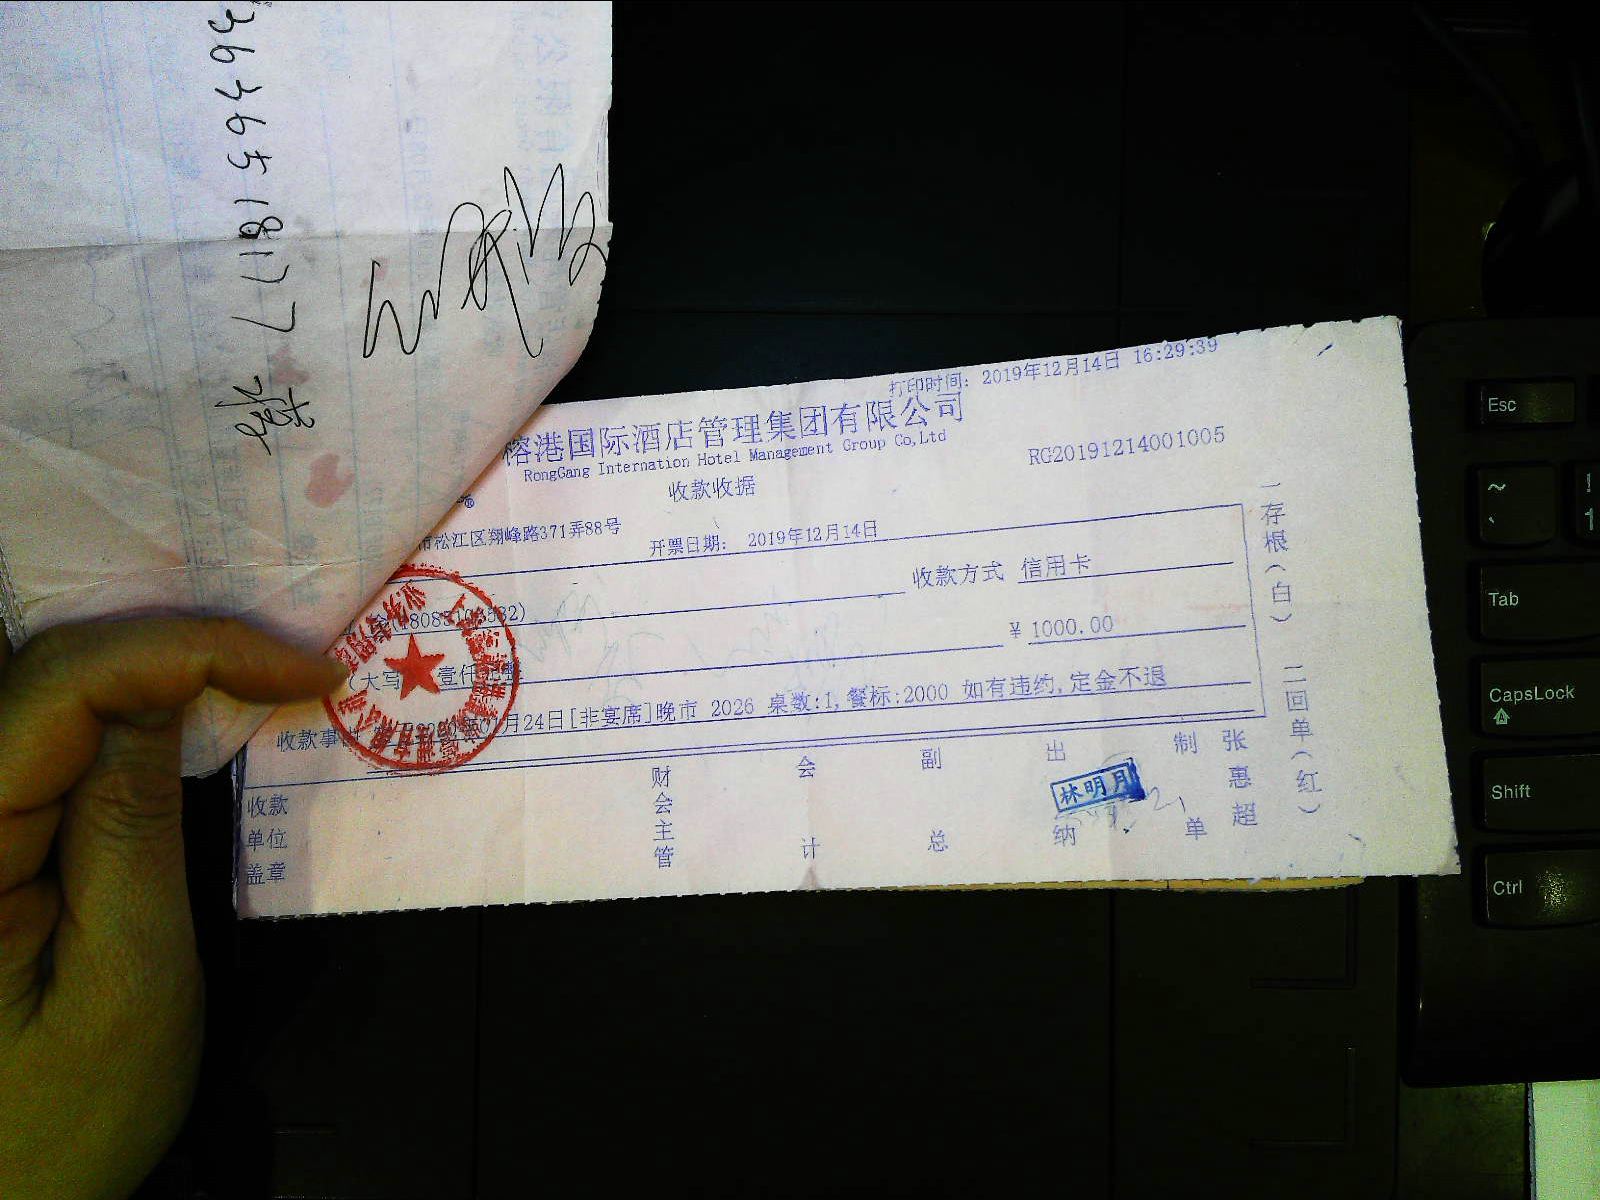 3636651817
打印时间: 2019年12月14日 16:29:39
榕港国际酒店管理集团有限公司
RongGang Internation Hotel Management Group Co,Ltd
RG20191214001005
收款收据
市松江区翔峰路371弄88号
开票日期: 2019年12月14日
收款方式 信用卡
¥ 1000.00
(大写
壹仟元整
收款事
月24日[非宴席]晚市 2026 桌数:1,餐标:2000 如有违约,定金不退
收款单位盖章
财会主管
会计
副总
出纳
林明月
制单
张惠超
一存根(白) 二回单(红)
Esc
~
!
1
Tab
CapsLock
Shift
Ctrl